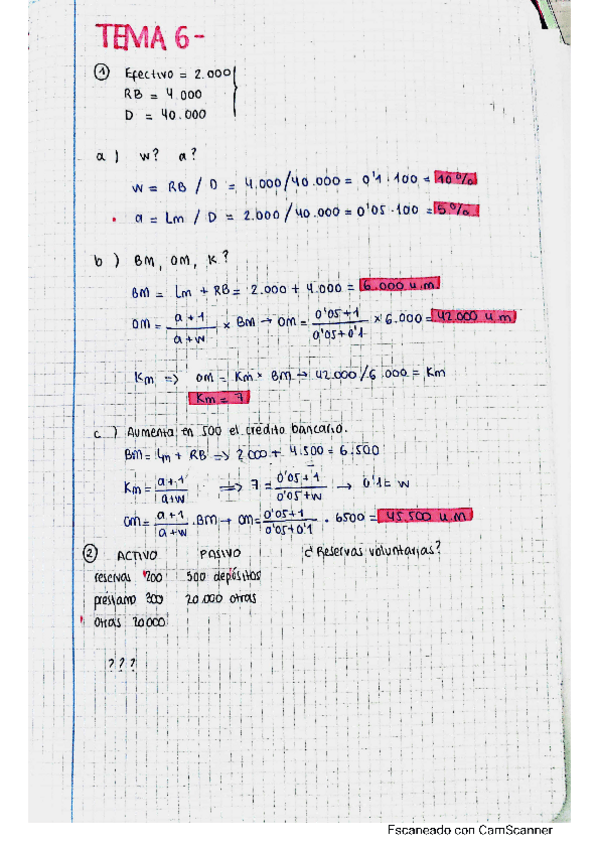 TEMA 6-
① Efectivo = 2.000
RB = 4.000
D = 40.000
a ) w? a?
w = RB / D = 4.000/40.000 = 0'1 · 100 = 10%
a = Lm / D = 2.000/40.000 = 0'05 · 100 = 5%
b ) BM, OM, K?
BM = Lm + RB = 2.000 + 4.000 = 6.000 u.m
OM = a+1 / a+w × BM → OM = 0'05+1 / 0'05+0'1 × 6.000 = 42.000 u.m
Km => OM = Km × BM → 42.000/6.000 = Km
Km = 7
c ) Aumenta en 500 el crédito bancario.
BM = Lm + RB => 2000 + 4.500 = 6.500
Km = a+1 / a+w => 7 = 0'05+1 / 0'05+w → 0'1 = w
OM = a+1 / a+w · BM → OM = 0'05+1 / 0'05+0'1 · 6500 = 45.500 u.m
② ACTIVO PASIVO ¿Reservas voluntarias?
reservas 200 500 depósitos
préstamo 300 20.000 otras
Otras 20000
???
Escaneado con CamScanner